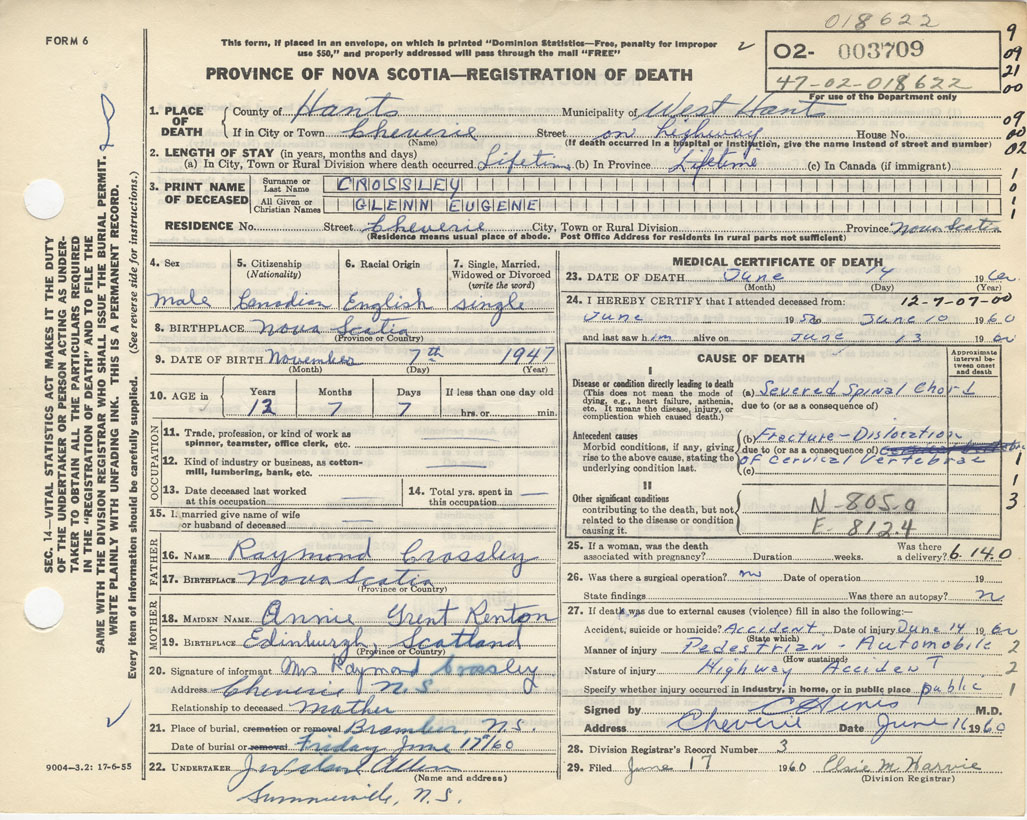 018622
FORM 6
This form, if placed in an envelope, on which is printed "Dominion Statistics—Free, penalty for improper
use $50," and properly addressed will pass through the mail "FREE"
02- 003709
47-02-018622
For use of the Department only
9
09
21
00
09
00
02
PROVINCE OF NOVA SCOTIA—REGISTRATION OF DEATH
SEC. 14—VITAL STATISTICS ACT MAKES IT THE DUTY
OF THE UNDERTAKER OR PERSON ACTING AS UNDER-
TAKER TO OBTAIN ALL THE PARTICULARS REQUIRED
IN THE "REGISTRATION OF DEATH" AND TO FILE THE
SAME WITH THE DIVISION REGISTRAR WHO SHALL ISSUE THE BURIAL PERMIT.
WRITE PLAINLY WITH UNFADING INK. THIS IS A PERMANENT RECORD.
Every item of information should be carefully supplied. (See reverse side for instructions.)
1. PLACE OF DEATH County of Hants Municipality of West Hants
If in City or Town Cheverie Street on highway House No.
(Name) (If death occurred in a hospital or institution, give the name instead of street and number)
2. LENGTH OF STAY (in years, months and days)
(a) In City, Town or Rural Division where death occurred Lifetime (b) In Province Lifetime (c) In Canada (if immigrant)
3. PRINT NAME OF DECEASED Surname or Last Name CROSSLEY
All Given or Christian Names GLENN EUGENE
1
0
1
1
RESIDENCE No. Street Cheverie City, Town or Rural Division Province Nova Scotia
(Residence means usual place of abode. Post Office Address for residents in rural parts not sufficient)
4. Sex 5. Citizenship (Nationality) 6. Racial Origin 7. Single, Married, Widowed or Divorced (write the word)
male Canadian English single
8. BIRTHPLACE Nova Scotia
(Province or Country)
9. DATE OF BIRTH November 7th 1947
(Month) (Day) (Year)
10. AGE in Years Months Days If less than one day old
12 7 7 hrs. or min.
OCCUPATION
11. Trade, profession, or kind of work as
spinner, teamster, office clerk, etc.
12. Kind of industry or business, as cotton-
mill, lumbering, bank, etc.
13. Date deceased last worked
at this occupation
14. Total yrs. spent in
this occupation
15. I. married give name of wife
or husband of deceased
FATHER
16. NAME Raymond Crossley
17. BIRTHPLACE Nova Scotia
(Province or Country)
MOTHER
18. MAIDEN NAME Annie Grent Renton
19. BIRTHPLACE Edinburgh, Scotland
(Province or Country)
20. Signature of informant Mrs Raymond Crossley
Address Cheverie N.S
Relationship to deceased Mother
21. Place of burial, cremation or removal Bramber, N.S.
Date of burial or removal Friday June 17th/60
22. UNDERTAKER Allen
(Name and address)
Summerville, N.S.
9004—3.2: 17-6-55
MEDICAL CERTIFICATE OF DEATH
23. DATE OF DEATH June 14 1960
(Month) (Day) (Year)
24. I HEREBY CERTIFY that I attended deceased from: 12-7-07-00
June 19 to June 10 1960
and last saw him alive on June 13 1960
CAUSE OF DEATH
Approximate interval between onset and death
I
Disease or condition directly leading to death
(This does not mean the mode of
dying, e.g., heart failure, asthenia,
etc. It means the disease, injury, or
complication which caused death.)
(a) Severed Spinal Chord
due to (or as a consequence of)
Antecedent causes
Morbid conditions, if any, giving
rise to the above cause, stating the
underlying condition last.
(b) Fracture-Dislocation
due to (or as a consequence of)
of Cervical Vertebrae
(c)
II
Other significant conditions
contributing to the death, but not
related to the disease or condition
causing it.
N-805.0
E-812.4
1
1
3
25. If a woman, was the death
associated with pregnancy? Duration weeks. Was there a delivery? 6.14.0
26. Was there a surgical operation? no Date of operation 19
State findings Was there an autopsy? n
27. If death was due to external causes (violence) fill in also the following:—
Accident, suicide or homicide? Accident Date of injury June 14 1960
(State which)
Manner of injury Pedestrian - Automobile 2
(How sustained)
Nature of injury Highway Accident 2
Specify whether injury occurred in industry, in home, or in public place public 1
Signed by M.D.
Address Cheverie Date June 16 1960
28. Division Registrar's Record Number 3
29. Filed June 17 1960 Elsie M Harvie
(Division Registrar)